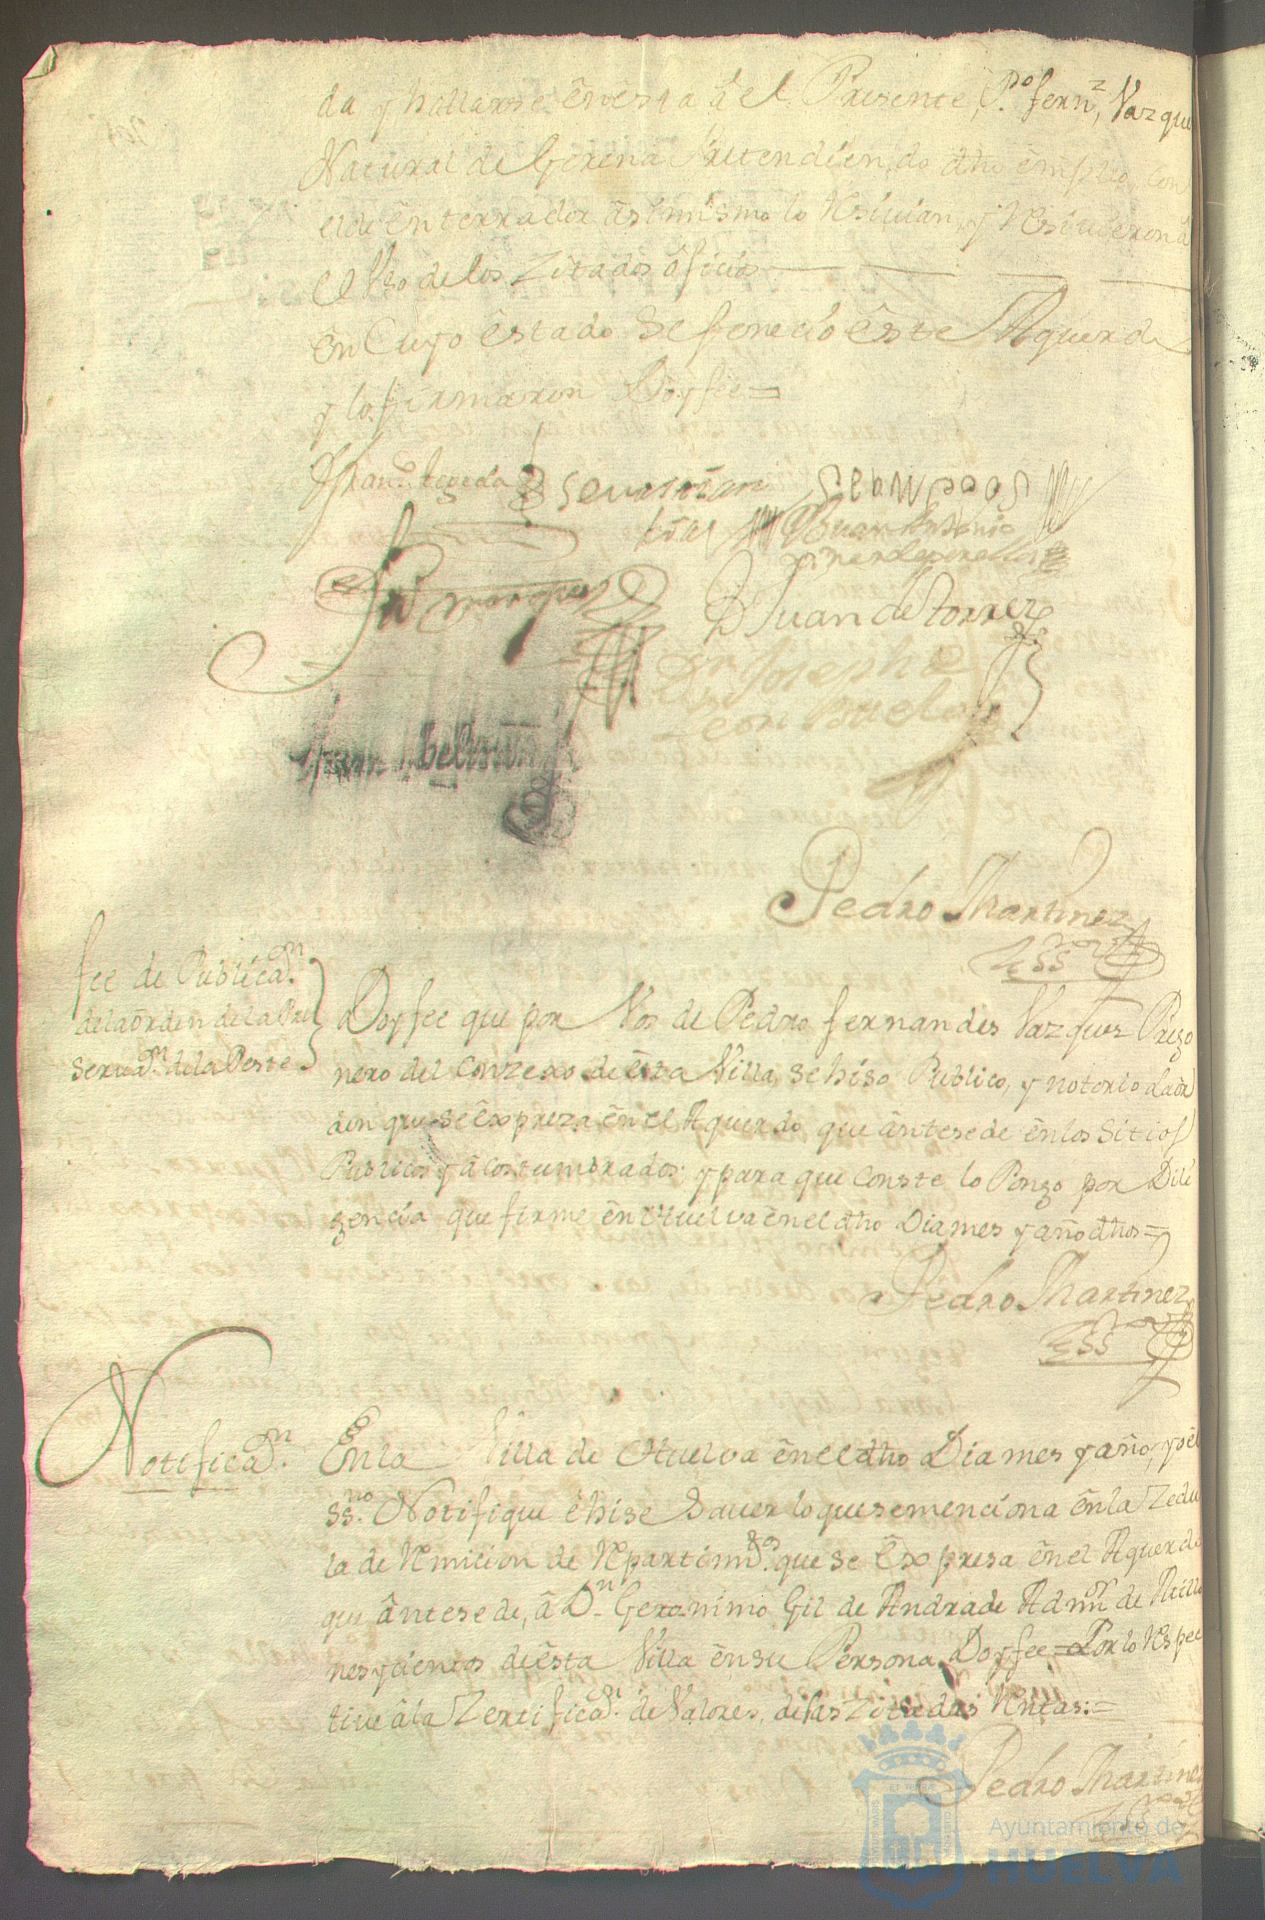 da y hallarse en esta de el Presente, P.º fern.z Vazque
Natural de Gerena Pretendiendo dho empleo, con
el de enterrador asimismo lo Resiuian, y Resiuieron a
el Vso de los Zitados oficios
en Cuyo estado se fenecio este Aquerdo
y lo firmaron Doy fee =
Fran.co Zepeda
Juan Antonio
D Juan de torres
D.n Josephe
Leon
Beltran
Pedro Martinez
ss.no
fee de Publica.on
dela orden dela Pre
serua.on de la Peste
Doy fee que por Vos de Pedro fernandes Vazquez Prego
nero del Conzexo de esta Villa, se hiso Publico, y notorio La or
den que se expreza en el Aquerdo que antesede en los Sitios
Publicos y acostumbrados; y para que Conste lo Pongo por Dili
gencia que firme en Huelva en el dho Dia mes y año dhos =
Pedro Martinez
ss.no
Notifica.on
En la Villa de Huelva en el dho Dia mes y año, yo el
ss.no Notifique e hise Sauer lo que se menciona en la Zedu
la de Remicion de Repartim.tos que se Expresa en el Aquerdo
que antesede, a D.n Geronimo Gil de Andrade Adm.or de Millo
nes y cientos de esta Villa en su Persona Doy fee = Por lo Respec
tiue a la Zertifica.on de Valores, de las Zitadas Rentas =
Pedro Martinez
Ayuntamiento de
HUELVA